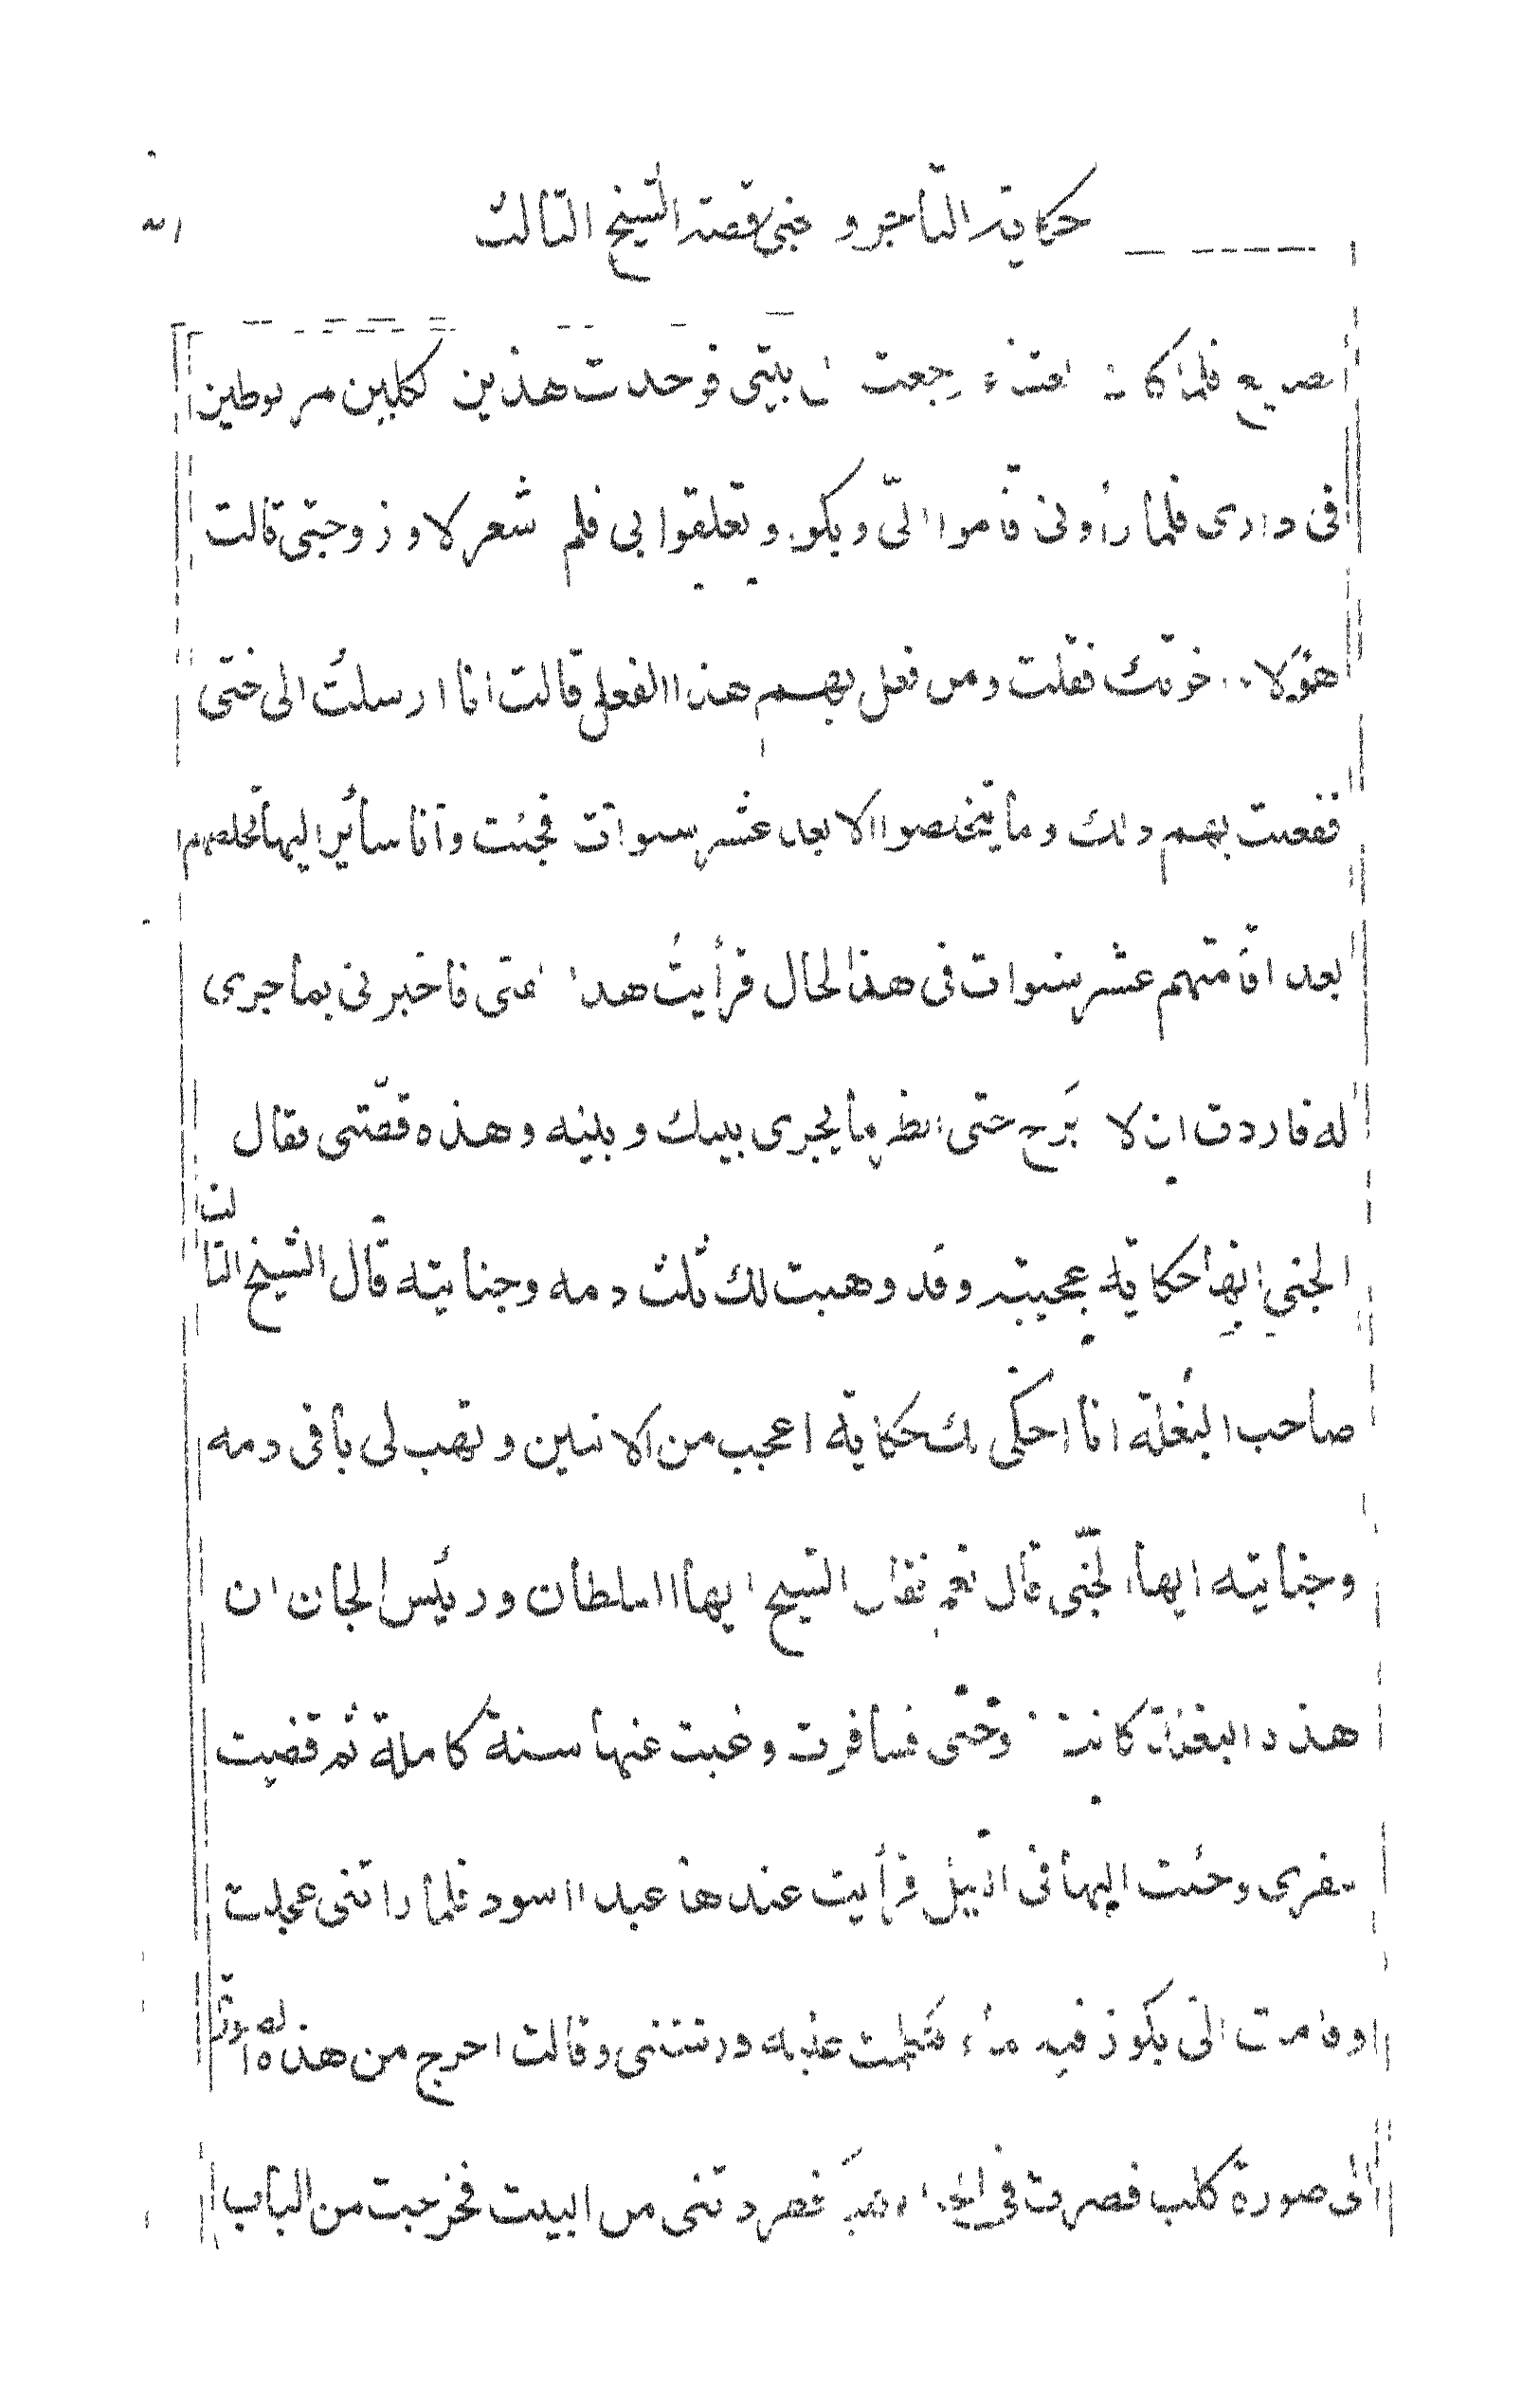 حكاية التاجر و جنى قصة الشيخ الثالث
فلما كان رجعت بيتى فوجدت هذين لكلبين مربوطين
فى دارى فلما رأونى قاموا الىّ وبكو و تعلقوا بى فلم شعر لا و زوجتى قالت
هؤلا خوتك فقلت ومن فعل بهم هذا الفعل قالت انا ارسلتُ الى ختى
ففعلت بهم ذلك وما يتخلصوا الا بعد عشر سنوات فجئت وانا سائر اليها تخلصهم
بعد اقامتهم عشر سنوات فى هذا لحال فرأيتُ هذا فتى فاخبرنى بما جرى
له فاردت ان لا برح حتى انظر ما يجرى بينك وبينه وهذه قصّتى فقال
الجني انها حكاية عجيبة وقد وهبت لك ثلث دمه وجنايته قال الشيخ الثالث
صاحب البغلة انا احكى لك حكاية اعجب من الاثنين وتهب لى باقى دمه
وجنايته ايها لجّنى قال نعم فقال الشيخ ايها السلطان ورئيس الجان ان
هذه البغلة كانت زوجتى فسافرت وغبت عنها سنة كاملة ثم قضيت
سفرى وجئت اليها فى الليل فرأيت عندها عبد اسود فلما راتنى عجلت
وقامت الى بكوز فيه ماء فتكلمت عليه ورشتنى وقالت اخرج من هذه الصورة
الى صورة كلب فصرت فى الحال فطردتنى من البيت فخرجت من الباب